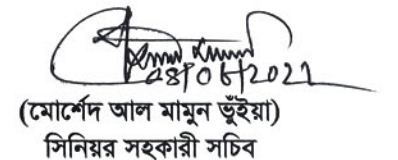 08/06/2022
(মোর্শেদ আল মামুন ভূঁইয়া)
সিনিয়র সহকারী সচিব